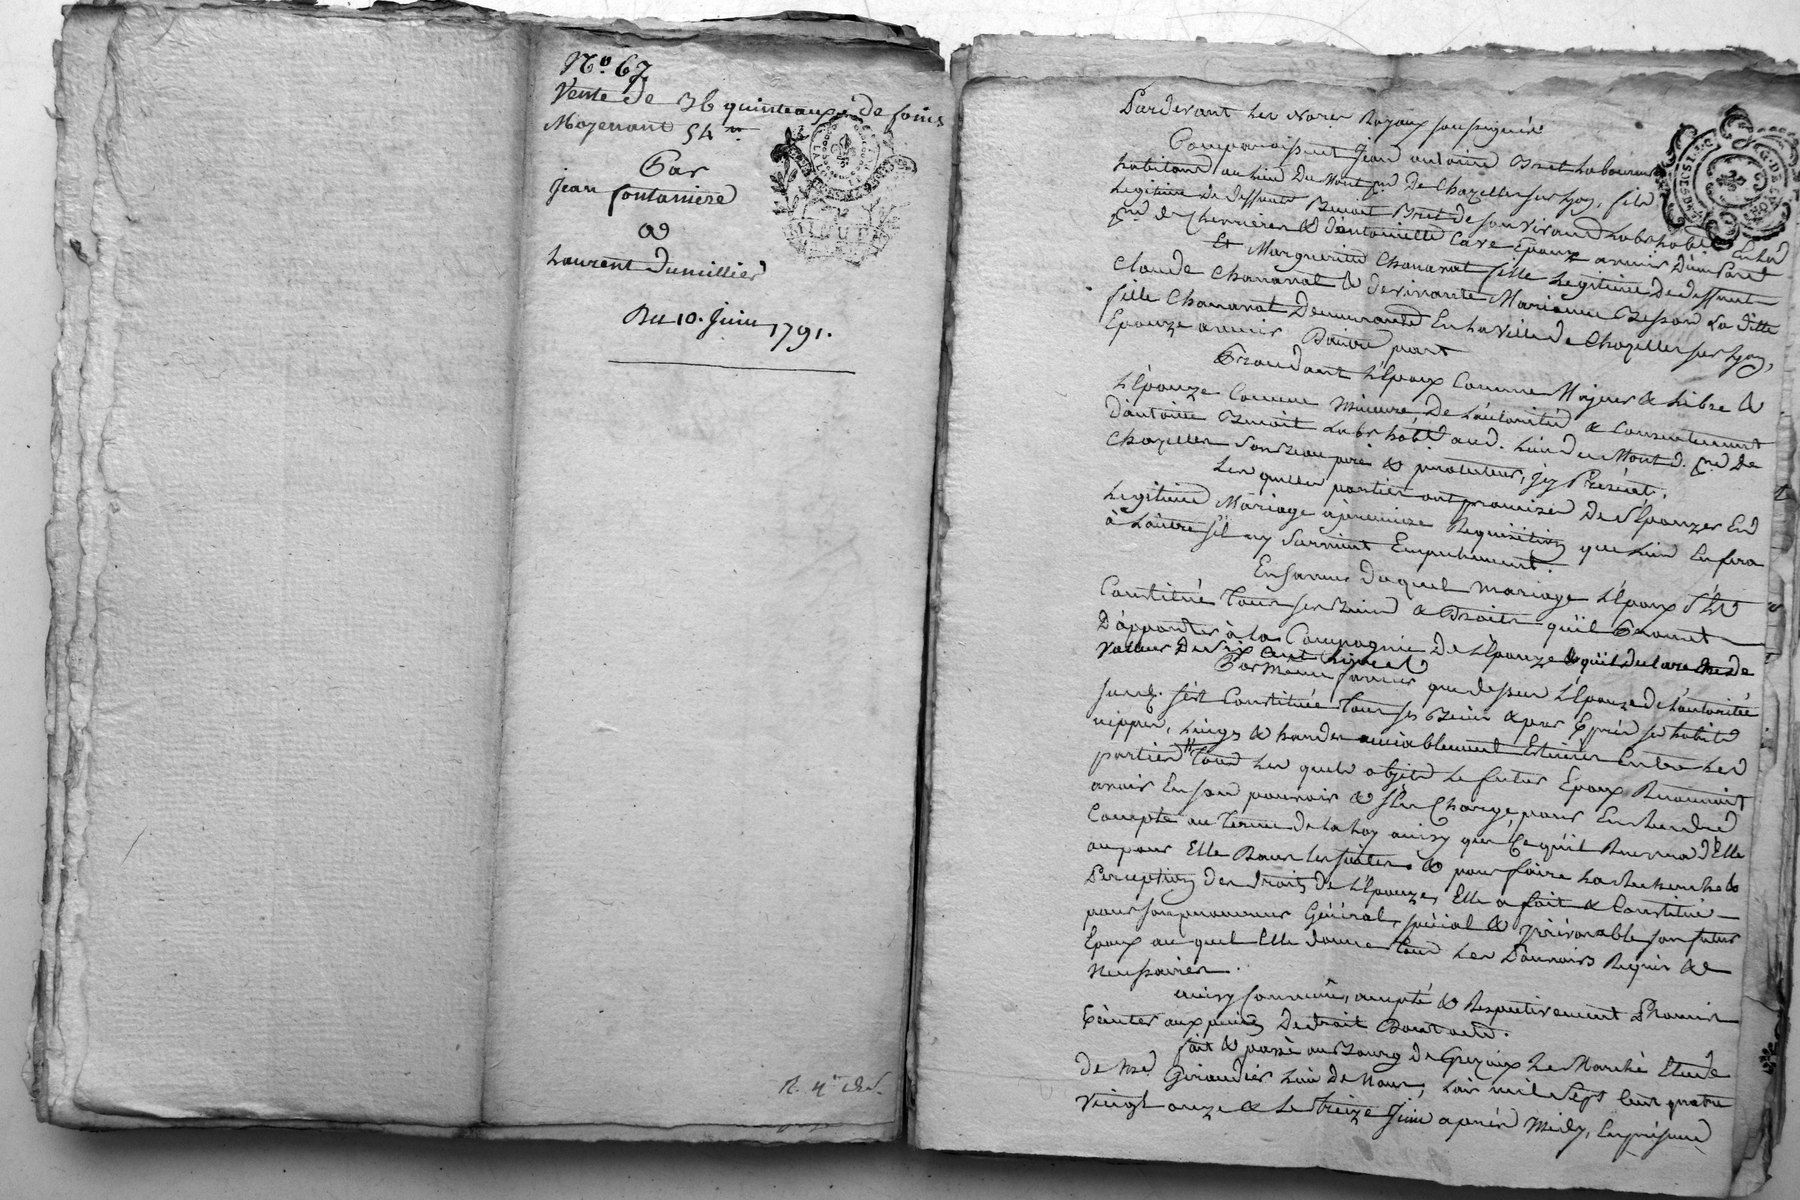 No. 67
Vente de 36 quinteaux de foins
Moyenant 54 tt
Par
jean fontaniere
a
Laurent dumillier
Du 10. juin 1791.
Pardevant les Nores Royaux soussignés
Comparoissent jean antoine Bret laboureur
habitant au lieu du Mont psse De Chazelles sur Lyon, fils
Legitime de deffunt Benoit Bret de son vivant labr habt en la
psse de & d'antoinette Epoux avenir d'une part
Et Marguerite Chanavat fille Legitime de deffunt
Claude Chanavat & de vivante Marianne Besson La ditte
fille Chanavat Demeurante En la Ville de Chazelles sur Lyon,
Epouze avenir D'autre part
Procedant L'Epoux Comme Majeur & Libre &
L'Epouze Comme Mineure, de L'autorité & Consentement
D'antoine Benoit Labr habt aud. Lieu du Mont d. psse De
Chazelles son Beau pere & protuteur, jcy Présent.
Les quelles parties ont promises De S'Epouzer En
Legitime Mariage a premiere Requisition que L'un En fera
à L'autre s'il n'y survient Empechement.
En faveur du quel mariage L'Epoux S'est
Constitué Tous ses Biens & Droits qu'il Promet
D'apporter à la Compagnie de L'Epouze & qu'il declare être de
Valeur De Six Cent Livres
Par Même faveur que dessus L'Epouze de L'autorité
susd. s'est Constituée Tous ses Biens & par Exprés ses habits
nippes, Linges & hardes amiablement Estimés Entre Les
parties Tous Les quels objets Le futur Epoux Reconnoit
avoir En son pouvoir & s'En Charge pour En Rendre
Compte au Terme de la Loy ainsy que Ce qu'il Recevra d'Elle
ou pour Elle Dans les suites. & pour faire La Recherche &
Perception des droits de L'Epouze, Elle a fait & Constitué
pour son procureur Général, spécial & jrrévocable son futur
Epoux au quel Elle donne tous Les Pouvoirs Requis &
Necessaires.
ainsy Convenu, accepté & Respectivement Promis
Exécuter aux peines De droit Dont acte.
fait & passé au Bourg de Grezieux Le Marché Etude
de Me Giraudier L'un de Nous, L'an mil Sept Cent quatre
Vingt onze & Le treize Juin aprés Midy, En présence